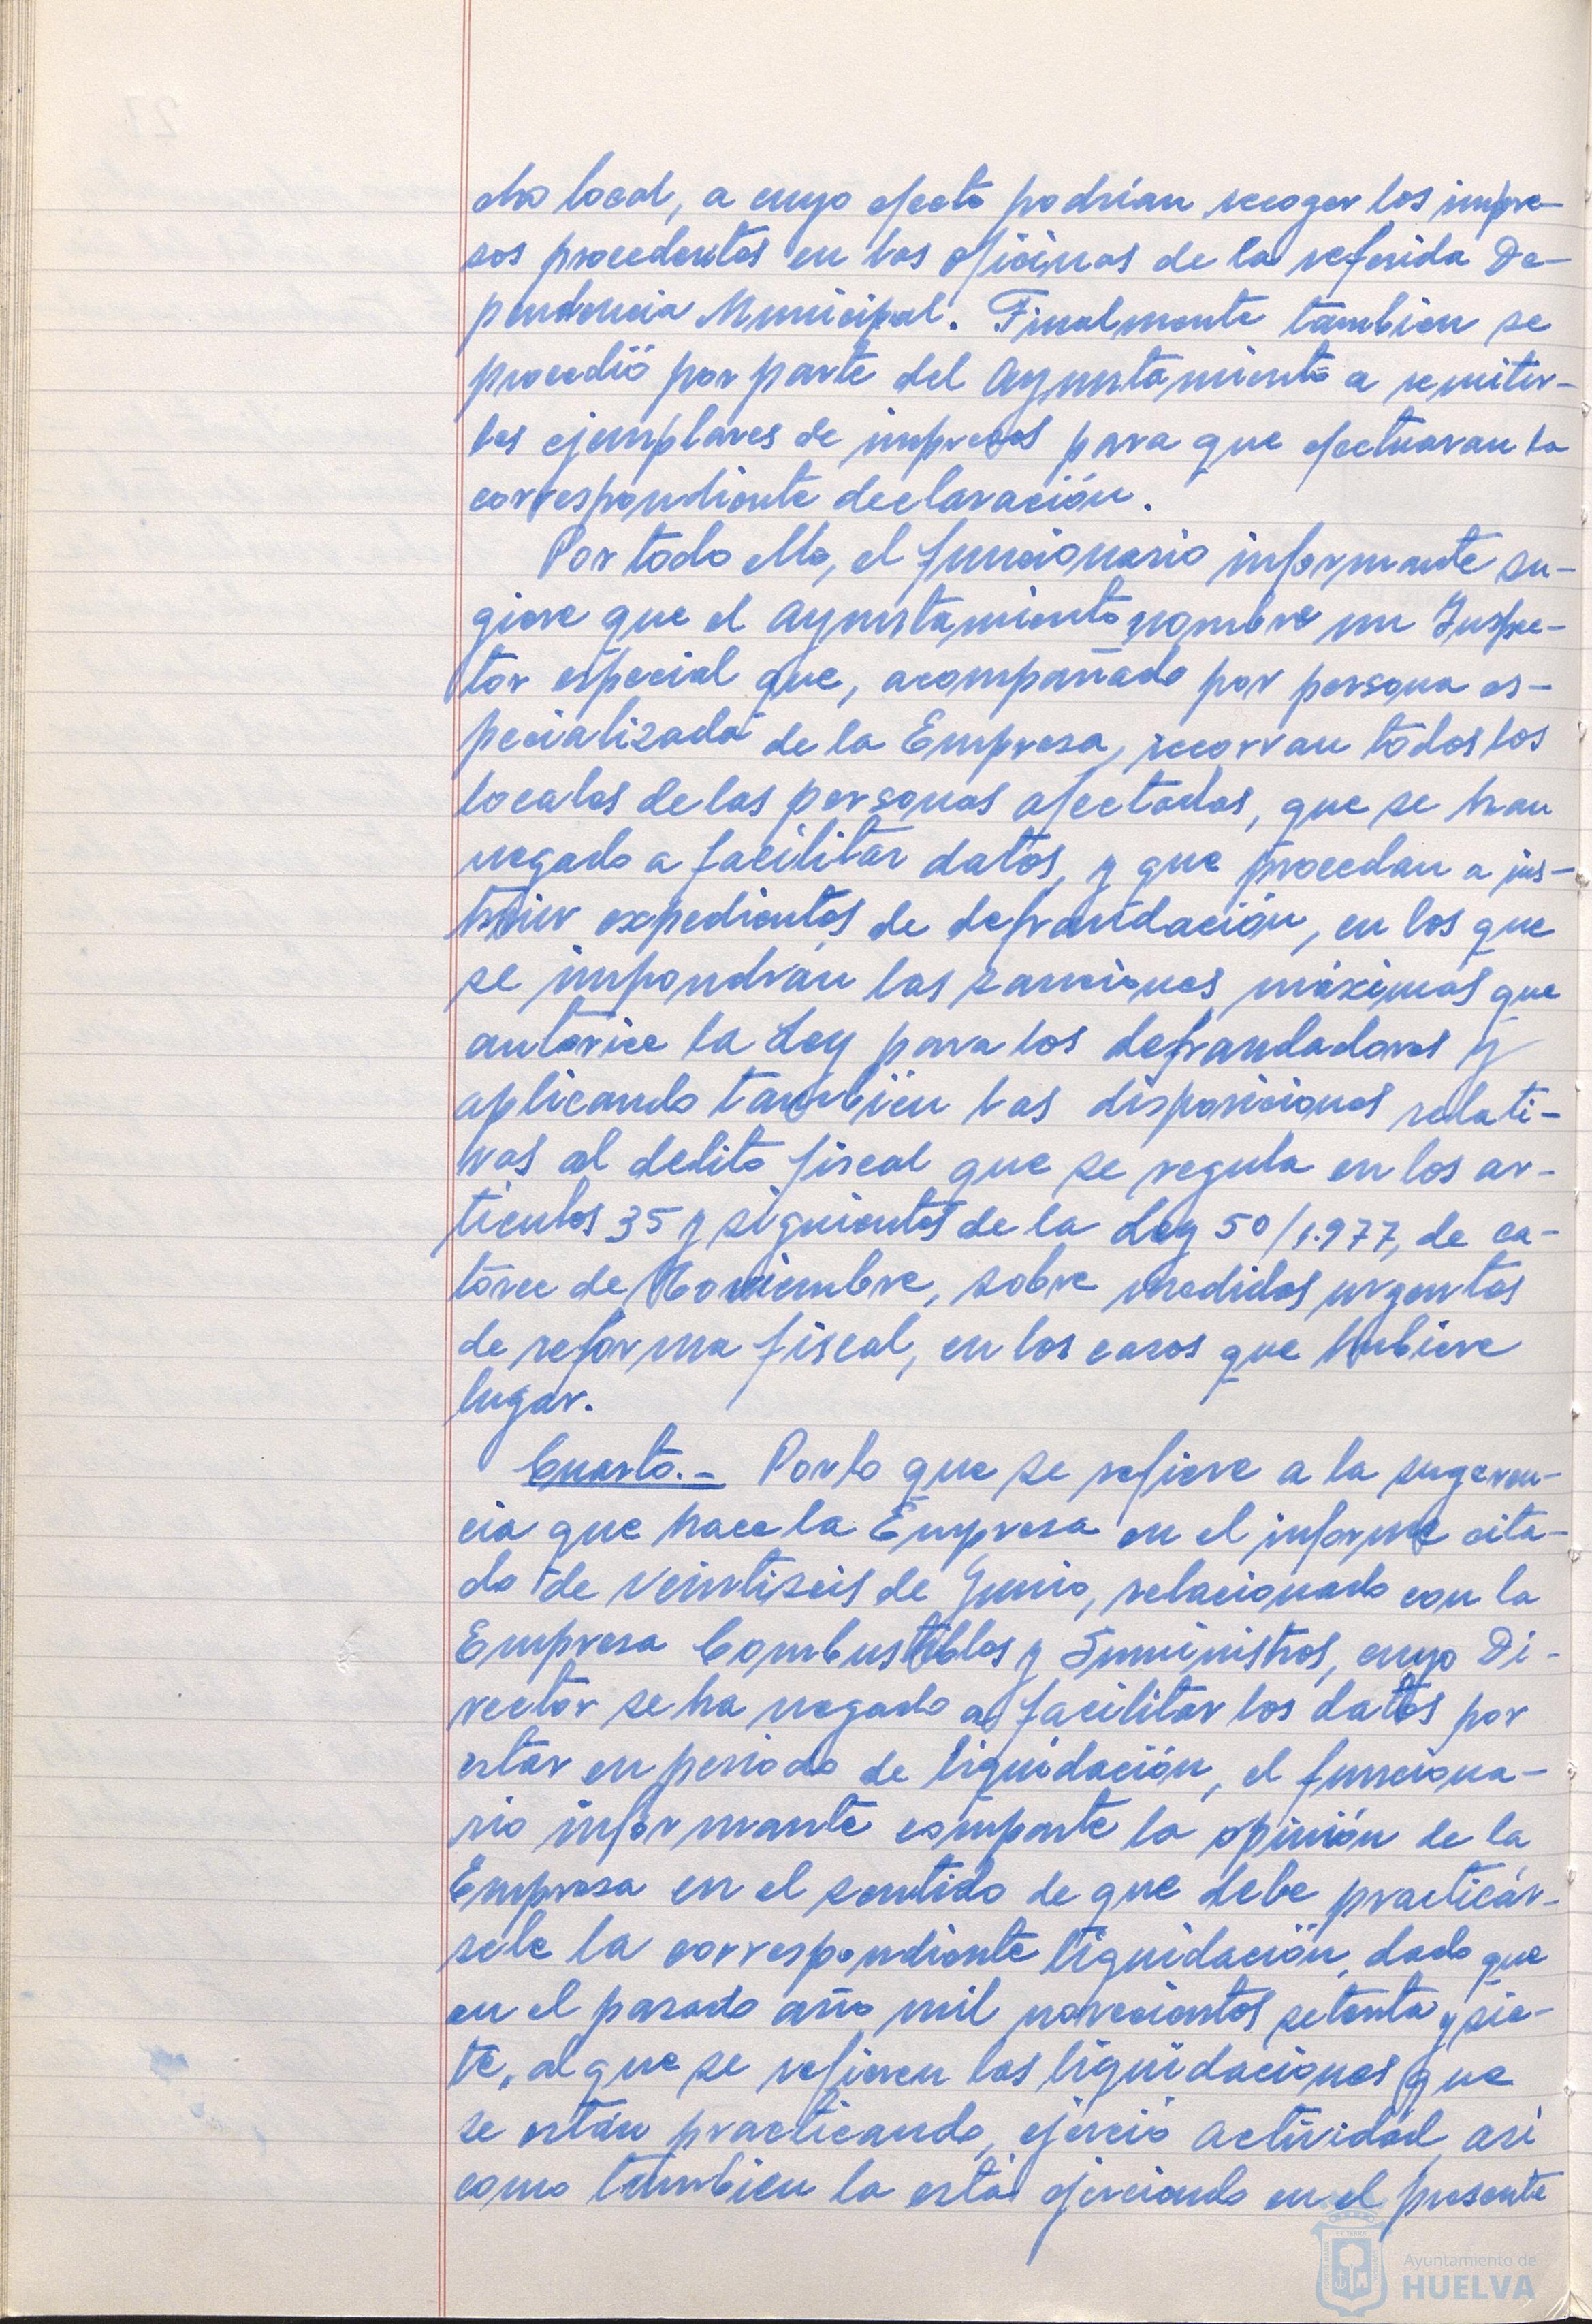 cho local, a cuyo efecto podrían recoger los impre-
sos procedentes en las oficinas de la referida De-
pendencia Municipal. Finalmente tambien se
procedió por parte del Ayuntamiento a remitir-
les ejemplares de impresos para que efectuaran la
correspondiente declaración.
Por todo ello, el funcionario informante su-
giere que el Ayuntamiento nombre un Inspec-
tor especial que, acompañado por persona es-
pecializada de la Empresa, recorran todos los
locales de las personas afectadas, que se han
negado a facilitar datos, y que procedan a ins-
truir expedientes de defraudación, en los que
se impondrán las sanciones máximas que
autorice la Ley para los defraudadores y
aplicando también las disposiciones relati-
vas al delito fiscal que se regula en los ar-
ticulos 35 y siguientes de la Ley 50/1.977, de ca-
torce de Noviembre, sobre medidas urgentes
de reforma fiscal, en los casos que hubiere
lugar.
Cuarto.- Por lo que se refiere a la sugeren-
cia que hace la Empresa en el informe cita-
do de veintiseis de Junio, relacionado con la
Empresa Combustibles y Suministros, cuyo Di-
rector se ha negado a facilitar los datos por
estar en periodo de liquidación, el funciona-
rio informante comparte la opinión de la
Empresa en el sentido de que debe practicár-
sele la correspondiente liquidación, dado que
en el pasado año mil novecientos setenta y sie-
te, al que se refieren las liquidaciones que
se están practicando, ejerció actividad, asi
como tambien la está ejerciendo en el presente
Ayuntamiento de
HUELVA